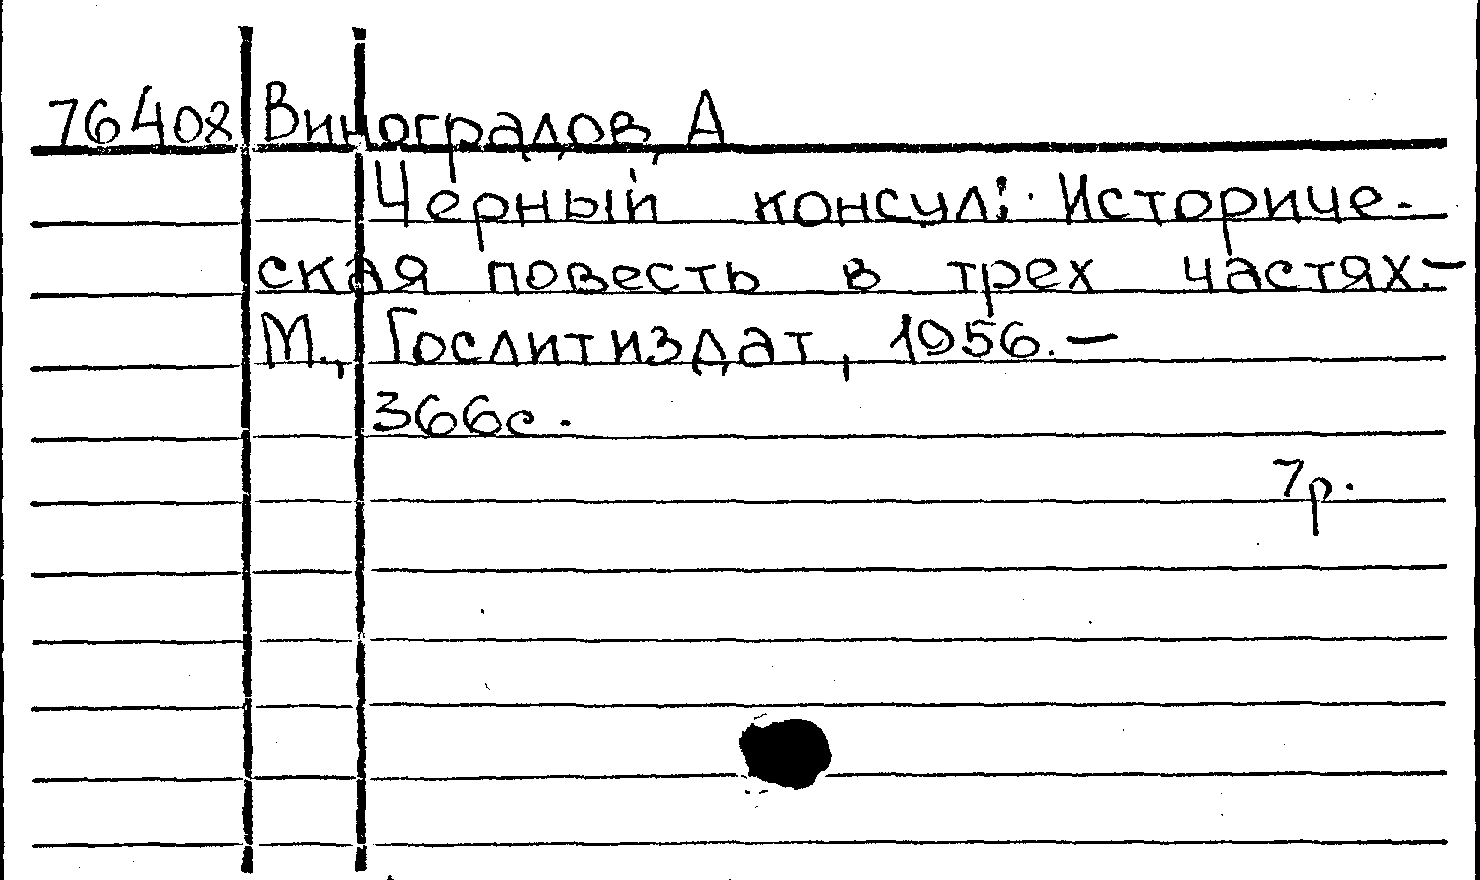 76408 Виноградов, А
Черный консул: Историче-
ская повесть в трех частях.—
М., Гослитиздат, 1956.—
366с.
7р.